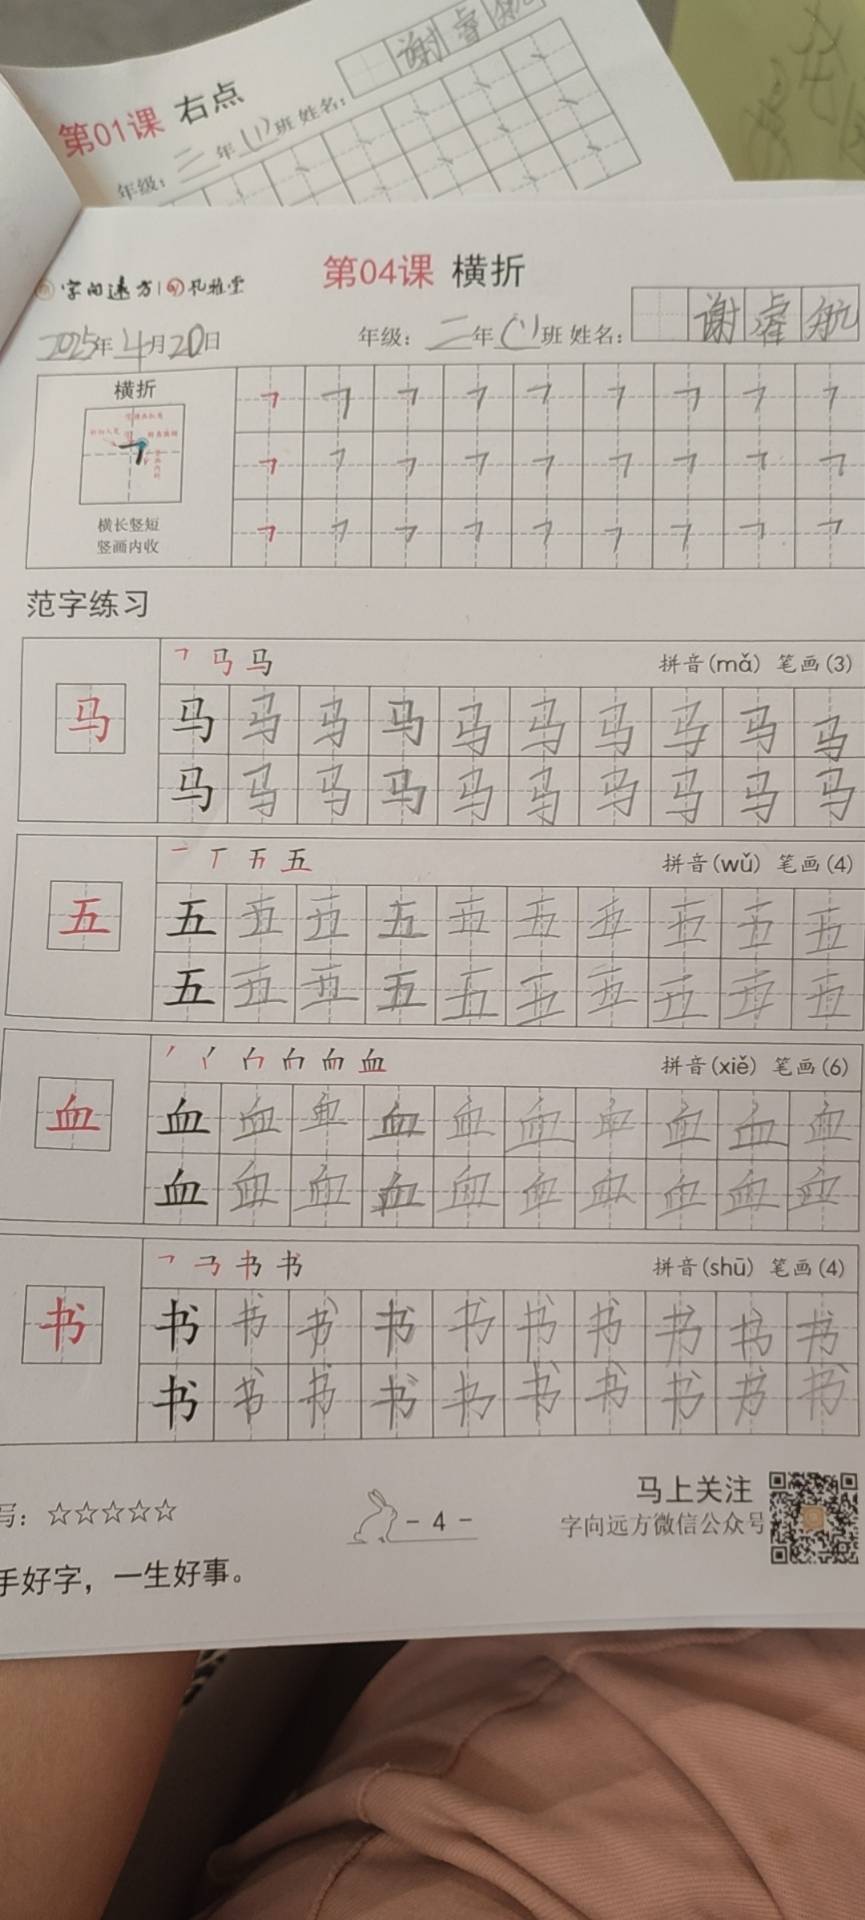 谢睿航
第01课 右点
年级：二年(1)班 姓名：
第04课 横折
字向远方 孔雅堂
2025年4月20日
年级：二年(1)班 姓名：谢睿航
横折
横长竖短
竖画内收
㇕ ㇕ ㇕ ㇕ ㇕ ㇕ ㇕ ㇕ ㇕
㇕ ㇕ ㇕ ㇕ ㇕ ㇕ ㇕ ㇕ ㇕
㇕ ㇕ ㇕ ㇕ ㇕ ㇕ ㇕ ㇕ ㇕
范字练习
马 马 拼音(mǎ) 笔画(3)
马
马 马 马 马 马 马 马 马 马 马
马 马 马 马 马 马 马 马 马 马
一 丅 五 五 拼音(wǔ) 笔画(4)
五
五 五 五 五 五 五 五 五 五 五
五 五 五 五 五 五 五 五 五 五
血 拼音(xiě) 笔画(6)
血
血 血 血 血 血 血 血 血 血 血
血 血 血 血 血 血 血 血 血 血
书 书 拼音(shū) 笔画(4)
书
书 书 书 书 书 书 书 书 书 书
书 书 书 书 书 书 书 书 书 书
写：☆☆☆☆☆
- 4 -
马上关注
字向远方微信公众号
手好字，一生好事。